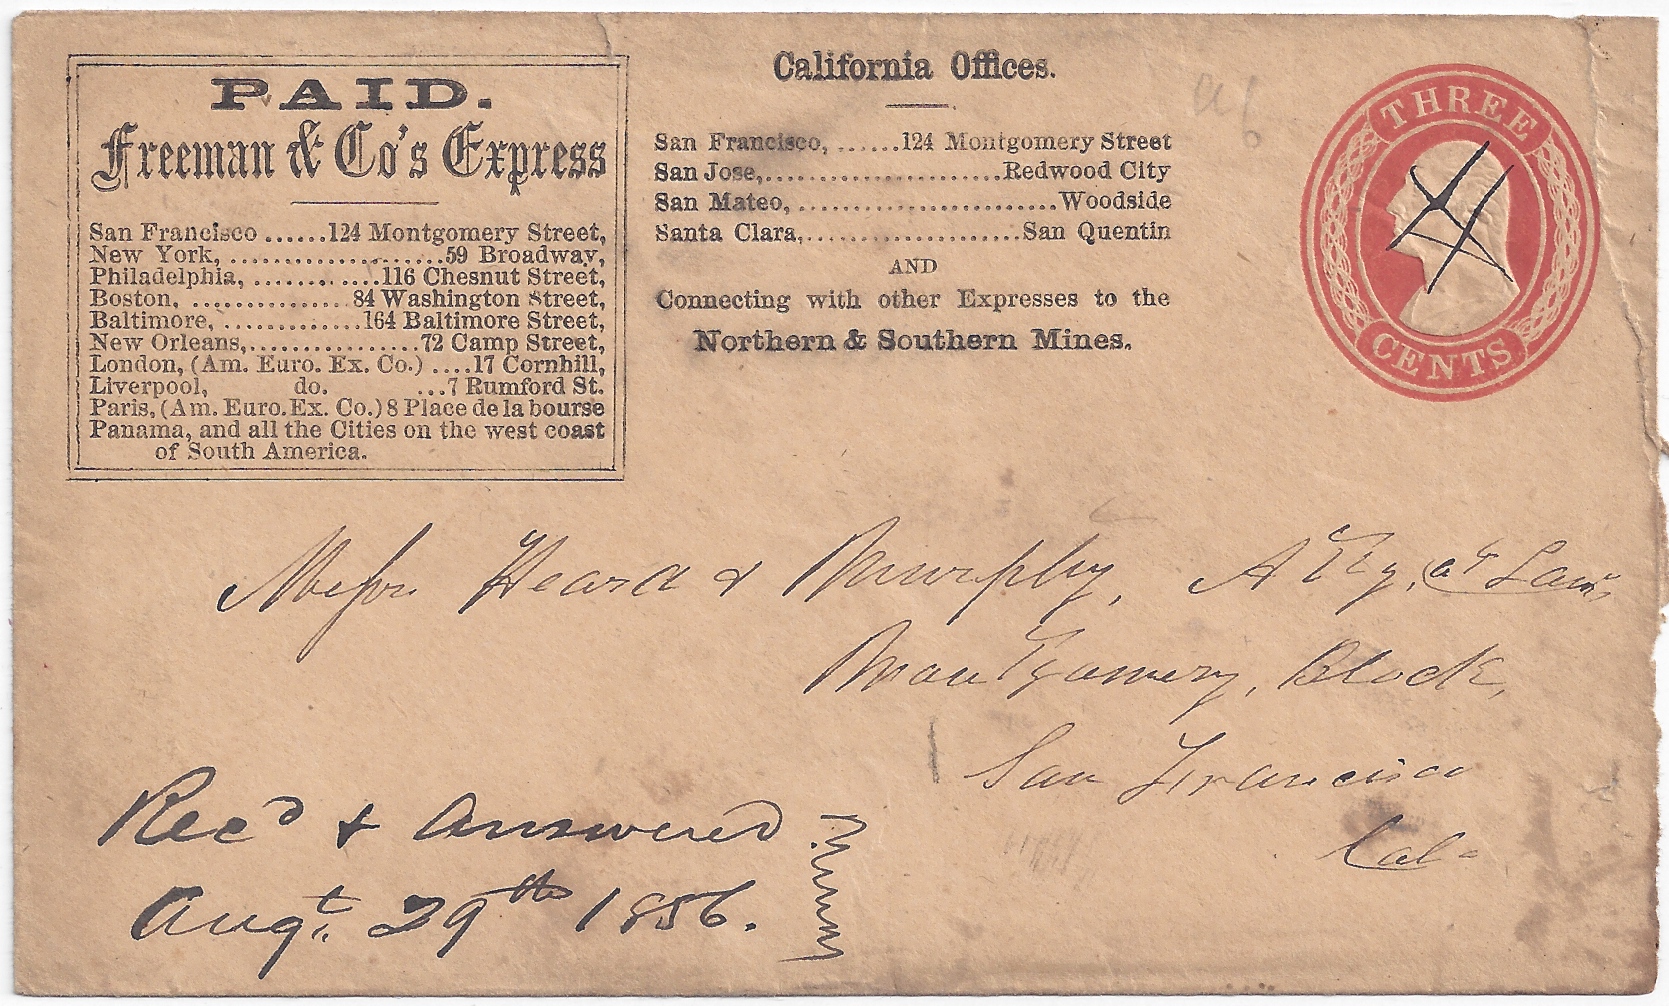 PAID.
Freeman & Co's Express
San Francisco ......124 Montgomery Street,
New York, .....................59 Broadway,
Philadelphia, ............116 Chesnut Street,
Boston, ...............84 Washington Street,
Baltimore, .............164 Baltimore Street,
New Orleans,................72 Camp Street,
London, (Am. Euro. Ex. Co.) ....17 Cornhill,
Liverpool, do. ...7 Rumford St.
Paris, (Am. Euro. Ex. Co.) 8 Place de la bourse
Panama, and all the Cities on the west coast
of South America.
California Offices.
San Francisco, ......124 Montgomery Street
San Jose,.......................Redwood City
San Mateo, .........................Woodside
Santa Clara,.....................San Quentin
AND
Connecting with other Expresses to the
Northern & Southern Mines.
THREE
CENTS
Messrs Heard & Murphy, Atty, at Law,
Montgomery, Block,
San Francisco
Cal-
Recd & answered
Augt. 29th 1856.